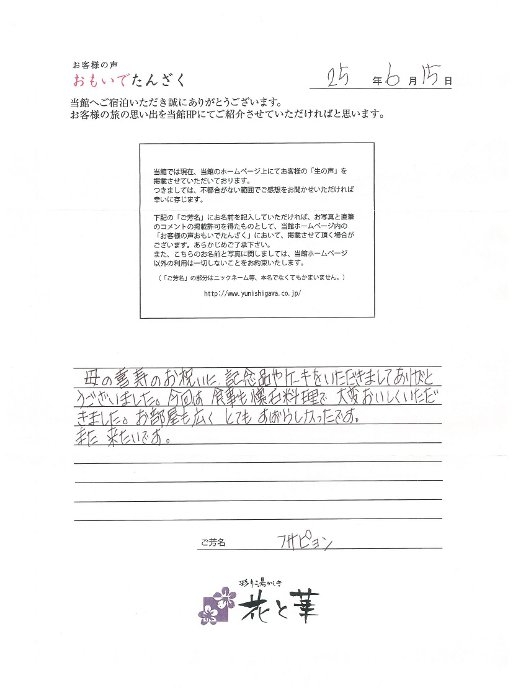 お客様の声
おもいでたんざく
25 年 6 月 15 日
当館へご宿泊いただき誠にありがとうございます。
お客様の旅の思い出を当館HPにてご紹介させていただければと思います。
当館では現在、当館のホームページ上にてお客様の「生の声」を
掲載させていただいております。
つきましては、不都合がない範囲でご感想をお聞かせいただければ
幸いに存じます。
下記の「ご芳名」にお名前を記入していただければ、お写真と直筆
のコメントの掲載許可を得たものとして、当館ホームページ内の
「お客様の声おもいでたんざく」において、掲載させて頂く場合が
ございます。あらかじめご了承下さい。
また、こちらのお名前と写真に関しましては、当館ホームページ
以外の利用は一切しないことをお約束いたします。
(「ご芳名」の部分はニックネーム等、本名でなくてもかまいません。)
http://www.yunishigawa.co.jp/
母の喜寿のお祝いに、記念品やケーキをいただきましてありがと
うございました。今回は食事も懐石料理で大変おいしくいただ
きました。お部屋も広くとてもすばらしかったです。
また来たいです。
ご芳名 フサピョン
彩り湯かしき
花と華